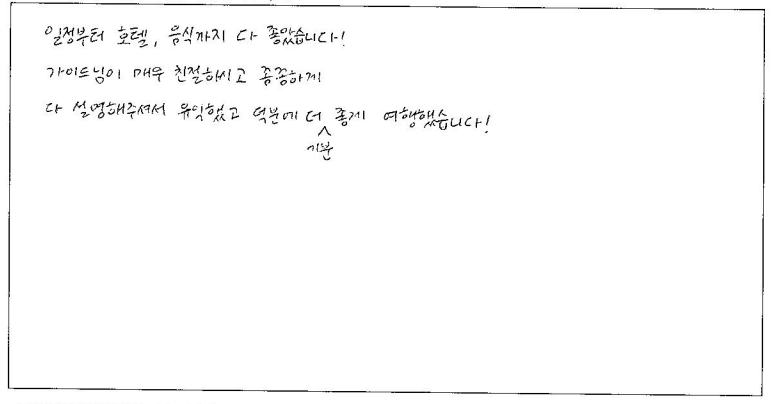 일정부터 호텔, 음식까지 다 좋았습니다!
가이드님이 매우 친절하시고 좀좀하게
다 설명해주셔서 유익했고 덕분에 더 좋게 여행했습니다!
기분